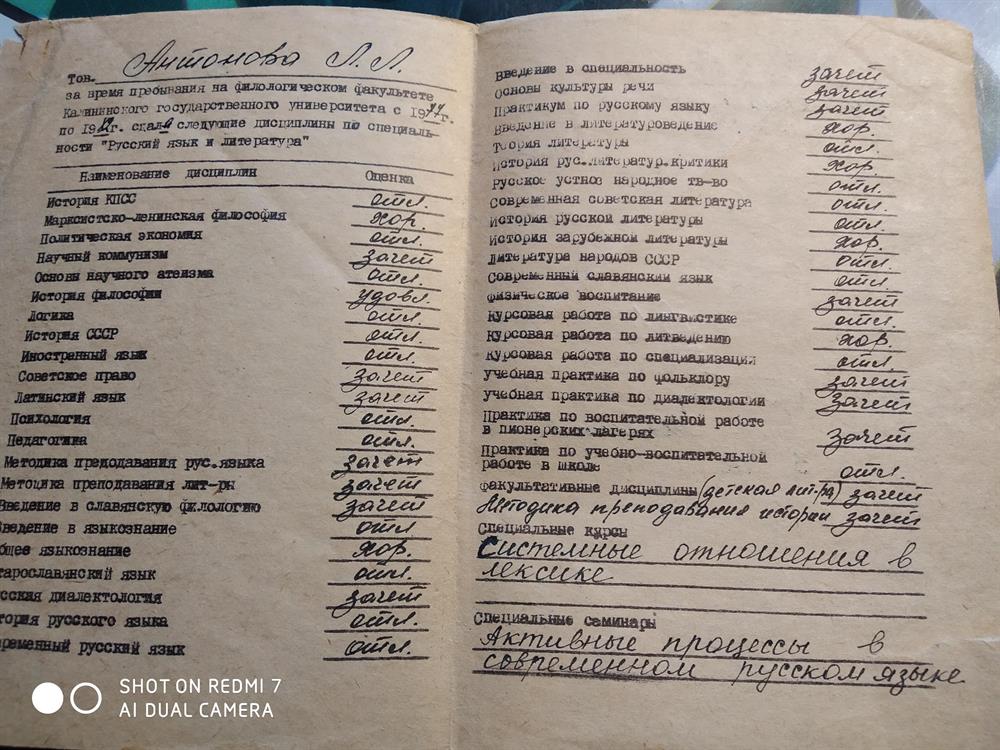 Тов. Антонова Л. Л.
за время пребывания на филологическом факультете
Калининского государственного университета с 1977г.
по 19 г. сдала следующие дисциплины по специаль-
ности "Русский язык и литература"
Наименование дисциплин Оценка
История КПСС отл.
Марксистско-ленинская философия хор.
Политическая экономия отл.
Научный коммунизм зачет
Основы научного атеизма отл.
История философии удовл.
Логика отл.
История СССР отл.
Иностранный язык отл.
Советское право зачет
Латинский язык зачет
Психология отл.
Педагогика отл.
Методика преподавания рус.языка зачет
Методика преподавания лит-ры зачет
Введение в славянскую филологию зачет
Введение в языкознание отл
бщее языкознание хор.
тарославянский язык отл.
сская диалектология зачет
тория русского языка отл.
ременный русский язык отл.
Введение в специальность зачет
Основы культуры речи зачет
Практикум по русскому языку зачет
Введение в литературоведение хор.
Теория литературы отл.
История рус.литератур.критики хор.
Русское устное народное тв-во отл.
Современная советская литература отл.
История русской литературы отл.
История зарубежной литературы хор.
Литература народов СССР отл.
Современный славянский язык отл.
Физическое воспитание зачет
Курсовая работа по лингвистике отл.
Курсовая работа по литведению хор.
Курсовая работа по специализации отл.
учебная практика по фольклору зачет
учебная практика по диалектологии зачет
Практика по воспитательной работе
в пионерских лагерях зачет
Практика по учебно-воспитательной
работе в школе отл.
Факультативные дисциплины (детская лит-ра) зачет
Методика преподавания истории зачет
Специальные курсы
Системные отношения в
лексике
Специальные семинары
Активные процессы в
современном русском языке
SHOT ON REDMI 7
AI DUAL CAMERA